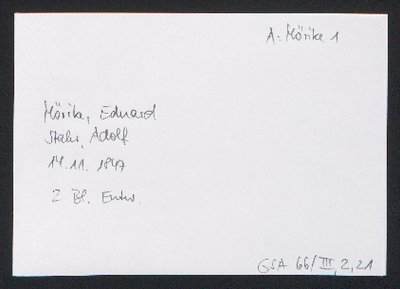 A: Mörike 1
Mörike, Eduard
Stahr, Adolf
14.11. 1847
2 Bl. Entw.
GSA 66/III, 2,21